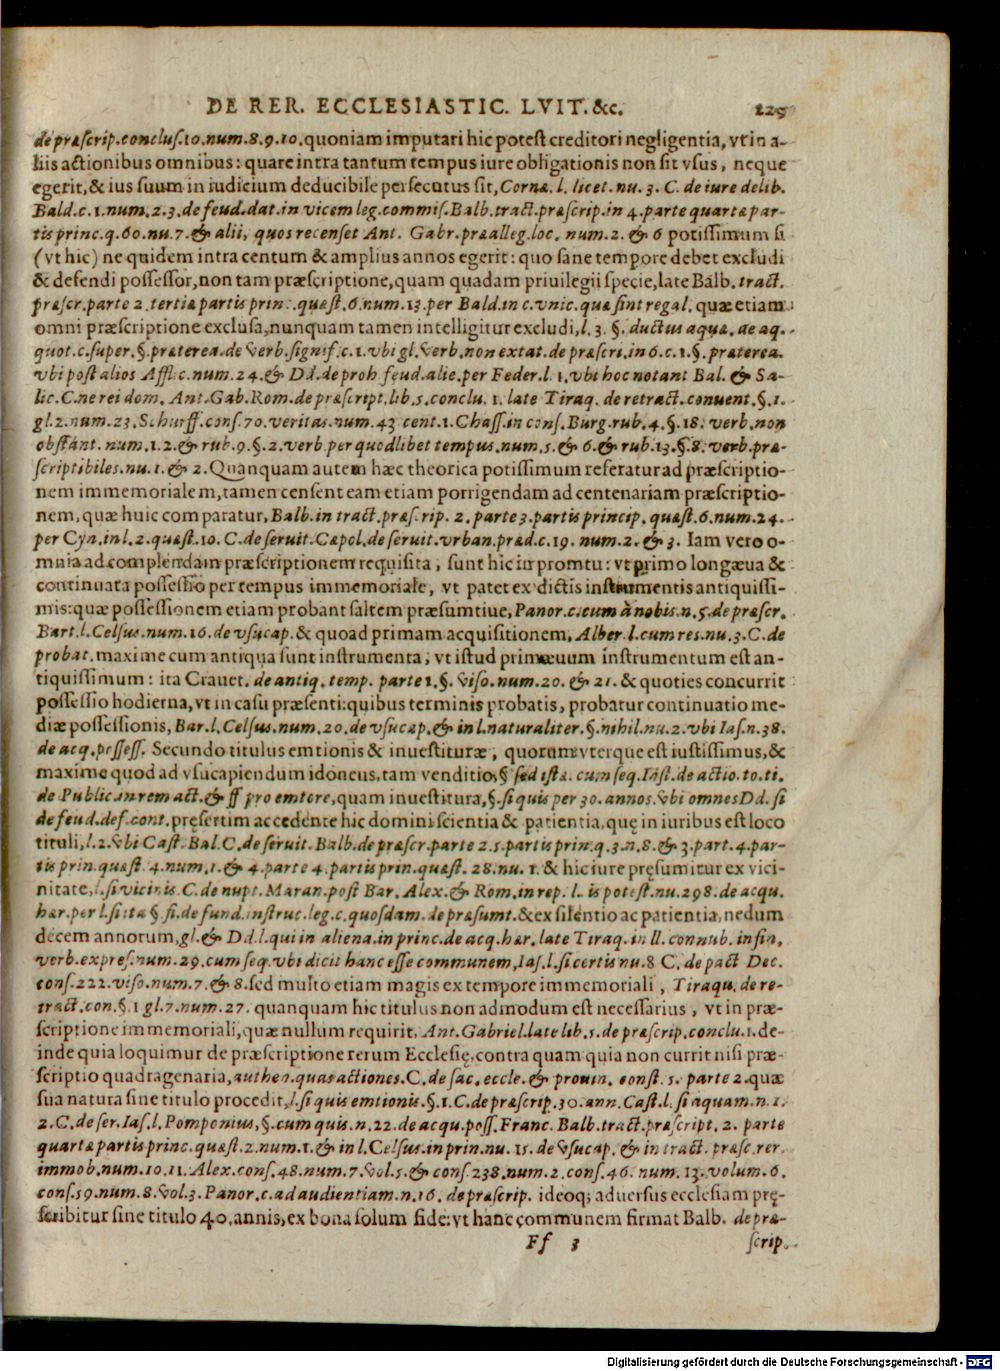 DE RER. ECCLESIASTIC. LVIT. &c. 229
de præscrip. conclus. 10. num. 8. 9. 10. quoniam imputari hic potest creditori negligentia, vt in a-
liis actionibus omnibus: quare intra tantum tempus iure obligationis non sit vsus, neque
egerit, & ius suum in iudicium deducibile persecutus sit, Cornæ. l. licet. nu. 3. C. de iure delib.
Bald. c. 1. num. 2. 3. de feud. dat. in vicem leg. commis. Balb. tract. præscrip. in 4. parte quartæ par-
tis princ. q. 60. nu. 7. & alii, quos recenset Ant. Gabr. præalleg. loc. num. 2. & 6 potissimum si
(vt hic) ne quidem intra centum & amplius annos egerit: quo sane tempore debet excludi
& defendi possessor, non tam præscriptione, quam quadam priuilegii specie, late Balb. tract.
præscr. parte 2. tertiæ partis prin. quæst. 6. num. 13. per Bald. in c. vnic. quæ sint regal. quæ etiam
omni præscriptione exclusa, nunquam tamen intelligitur excludi, l. 3. §. ductus aquæ, de aq.
quot. c. super. §. præterea. de verb. signif. c. 1. vbi gl. verb. non extat. de præscri. in 6. c. 1. §. præterea.
vbi post alios Affl. c. num. 24. & Dd. de proh feud. alie. per Feder. l. 1. vbi hoc notant Bal. & Sa-
lic. C. ne rei dom. Ant. Gab. Rom. de præscript. lib. 5. conclu. 1. late Tiraq. de retract. conuent. §. 1.
gl. 2. num. 23. Schurff. cons. 70. veritas. num. 43 cent. 1. Chass. in cons. Burg. rub. 4. §. 18. verb. non
obstant. num. 1. 2. & rub. 9. §. 2. verb. per quodlibet tempus. num. 5. & 6. & rub. 13. §. 8. verb. præ-
scriptibiles. nu. 1. & 2. Quanquam autem hæc theorica potissimum referatur ad præscriptio-
nem immemorialem, tamen censent eam etiam porrigendam ad centenariam præscriptio-
nem, quæ huic comparatur, Balb. in tract. præscrip. 2. parte 3. partis princip. quæst. 6. num. 24.
per Cyn. in l. 2. quæst. 10. C. de seruit. Cæpol. de seruit. vrban. præd. c. 19. num. 2. & 3. Iam vero o-
mnia ad complendam præscriptionem requisita, sunt hic in promtu: vt primo longæua &
continuata possessio per tempus immemoriale, vt patet ex dictis instrumentis antiquissi-
mis: quæ possessionem etiam probant saltem præsumtiue, Panor. c. cum à nobis. n. 5. de præscr.
Bart. l. Celsus. num. 16. de vsucap. & quoad primam acquisitionem, Alber. l. cum res. nu. 3. C. de
probat. maxime cum antiqua sunt instrumenta, vt istud primæuum instrumentum est an-
tiquissimum: ita Crauet. de antiq. temp. parte 1. §. viso. num. 20. & 21. & quoties concurrit
possessio hodierna, vt in casu præsenti: quibus terminis probatis, probatur continuatio me-
diæ possessionis, Bar. l. Celsus. num. 20. de vsucap. & in l. naturaliter. §. nihil. nu. 2. vbi Ias. n. 38.
de acq. possess. Secundo titulus emtionis & inuestituræ, quorum vterque est iustissimus, &
maxime quod ad vsucapiendum idoneus, tam venditio, § sed ista. cum seq. Inst. de actio. to. ti.
de Public. in rem act. & ff pro emtore, quam inuestitura, §. si quis per 30. annos. vbi omnes Dd. si
de feud. def. cont. pręsertim accedente hic domini scientia & patientia, quę in iuribus est loco
tituli, l. 2. vbi Cast. Bal. C. de seruit. Balb. de præscr. parte 2. 5. partis prin. q. 3. n. 8. & 3. part. 4. par-
tis prin. quæst. 4. num. 1. & 4. parte 4. partis prin. quæst. 28. nu. 1. & hic iure pręsumitur ex vici-
nitate, l. si vicinis. C. de nupt. Maran. post Bar. Alex. & Rom. in rep. l. is potest. nu. 298. de acqu.
hær. per l. si ita §. fi. de fund. instruc. leg. c. quosdam. de præsumt. & ex silentio ac patientia, nedum
decem annorum, gl. & Dd. l. qui in aliena. in princ. de acq. hær. late Tiraq. in ll. connub. in fin.
verb. expres. num. 29. cum seq. vbi dicit hanc esse communem, Ias. l. si certis nu. 8 C. de pact Dec.
cons. 222. viso. num. 7. & 8. sed multo etiam magis ex tempore immemoriali, Tiraqu. de re-
tract. con. §. 1 gl. 7. num. 27. quanquam hic titulus non admodum est necessarius, vt in præ-
scriptione immemoriali, quæ nullum requirit. Ant. Gabriel. late lib. 5. de præscrip. conclu. 1. de-
inde quia loquimur de præscriptione rerum Ecclesię, contra quam quia non currit nisi præ-
scriptio quadragenaria, authen. quas actiones. C. de sac. eccle. & prouin. const. 5. parte 2. quæ
sua natura sine titulo procedit, l. si quis emtionis. §. 1. C. de præscrip. 30. ann. Cast. l. si aquam. n. 1.
2. C. de ser. Ias. l. Pomponius, §. cum quis. n. 22. de acqu. poss. Franc. Balb. tract. præscript. 2. parte
quartæ partis princ. quæst. 2. num. 1. & in l. Celsus. in prin. nu. 15. de vsucap. & in tract. præsc. rer.
immob. num. 10. 11. Alex. cons. 48. num. 7. vol. 5. & cons. 238. num. 2. cons. 46. num. 13. volum. 6.
cons. 59. num. 8. vol. 3. Panor. c. ad audientiam. n. 16. de præscrip. ideoq; aduersus ecclesiam prę-
scribitur sine titulo 40. annis, ex bona solum fide: vt hanc communem firmat Balb. de præ-
Ff 3 scrip.
Digitalisierung gefördert durch die Deutsche Forschungsgemeinschaft - DFG